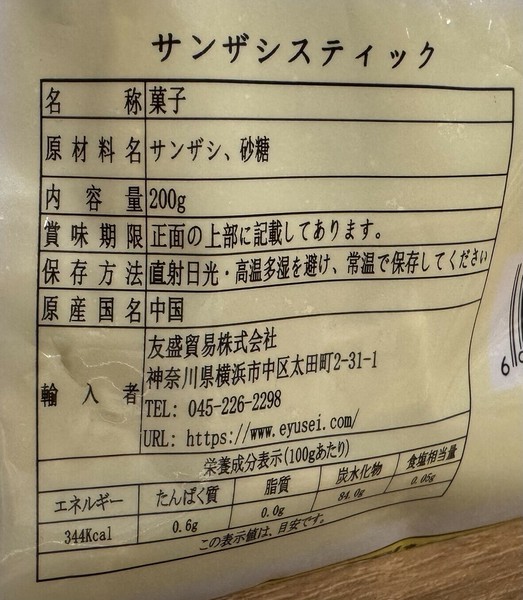 サンザシスティック
名称 菓子
原材料名 サンザシ、砂糖
内容量 200g
賞味期限 正面の上部に記載してあります。
保存方法 直射日光・高温多湿を避け、常温で保存してください
原産国名 中国
輸入者 友盛貿易株式会社
神奈川県横浜市中区太田町2-31-1
TEL: 045-226-2298
URL: https://www.eyusei.com/
栄養成分表示(100gあたり)
エネルギー たんぱく質 脂質 炭水化物 食塩相当量
344Kcal 0.6g 0.0g 84.0g 0.05g
この表示値は、目安です。